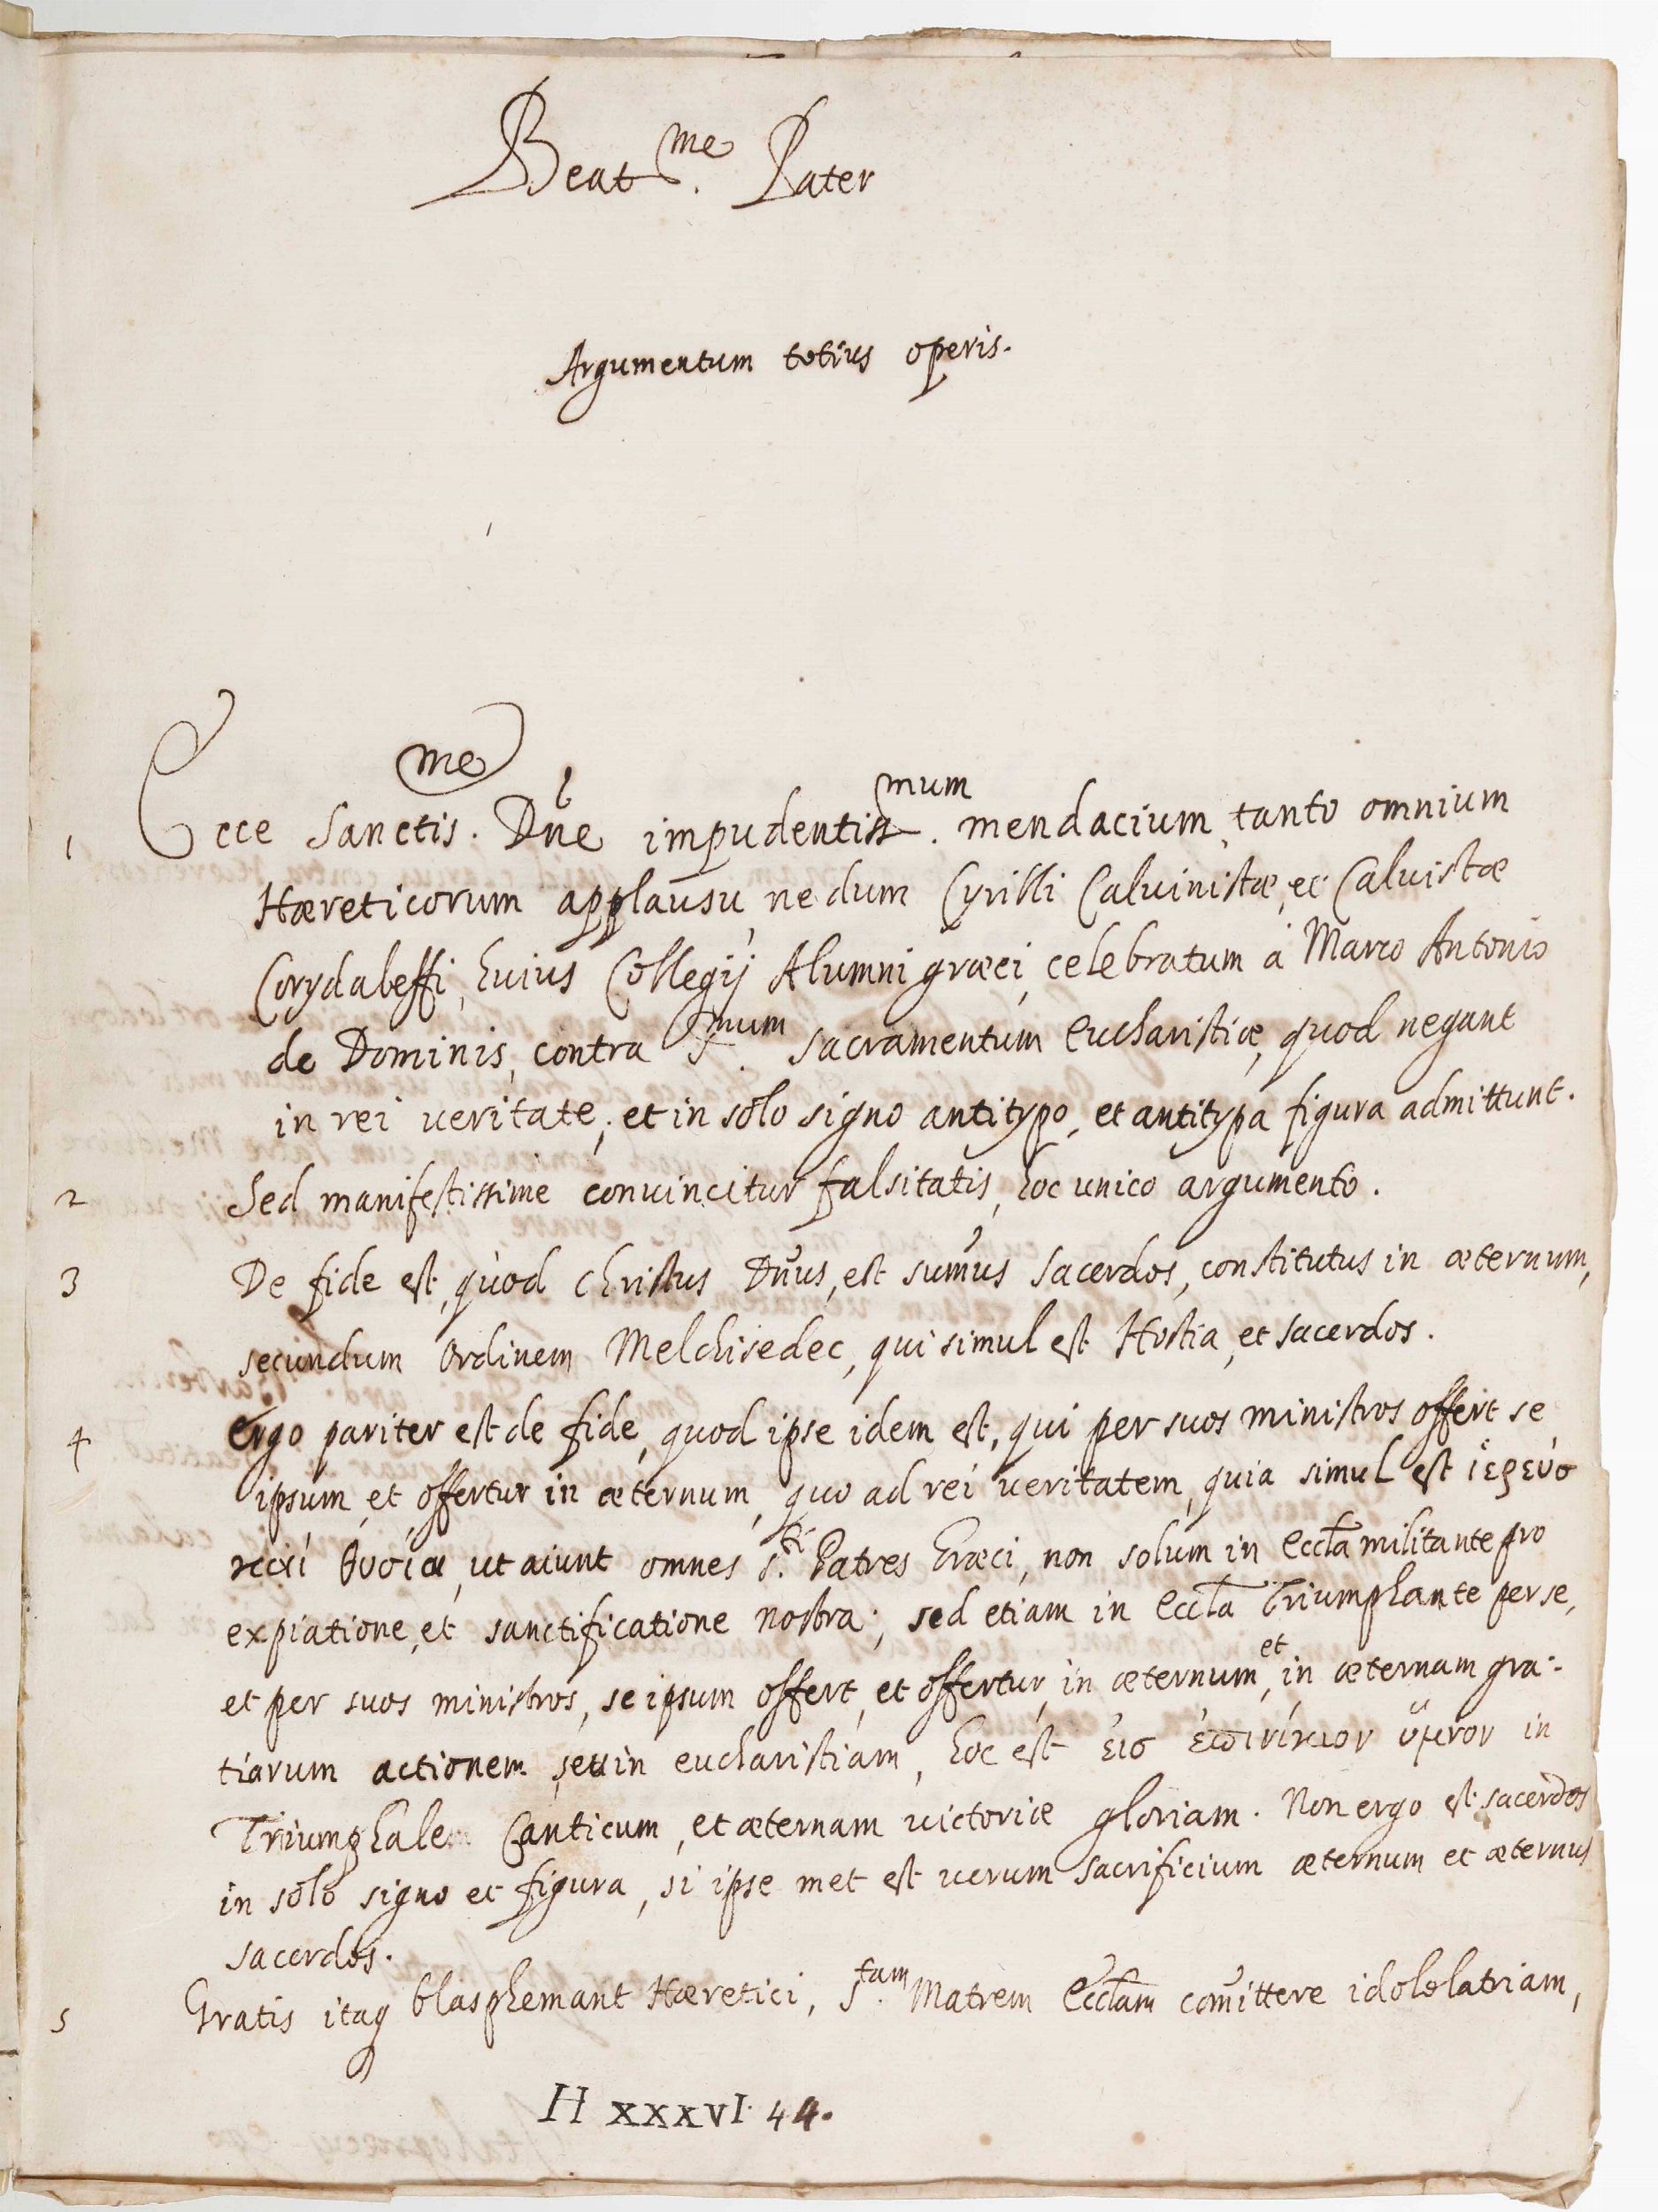 Beat.me Pater
Argumentum totius operis.
1 Ecce Sanctis.me Dñe impudentiss.mum mendacium, tanto omnium
Hæreticorum applausu, nedum Cyrilli Caluinistæ, et Caluistæ
Corydaleffi, huius Collegij Alumni græci, celebratum à Marco Antonio
de Dominis, contra S.mum sacramentum Eucharistiæ, quod negant
in rei ueritate; et in solo signo antitypo, et antitypa figura admittunt.
2 Sed manifestissime conuincitur falsitatis, hoc unico argumento.
3 De fide est, quod Christus Dñus, est sum̃us Sacerdos, constitutus in æternum,
secundum Ordinem Melchisedec, qui simul est Hostia, et sacerdos.
4 ergo pariter est de fide, quod ipse idem est, qui per suos ministros offert se
ipsum, et offertur in æternum, quo ad rei ueritatem, quia simul est ἱερεύσ
καὶ θυσία, ut aiunt omnes S.ti Patres Græci, non solum in Eccl̃a militante pro
expiatione, et sanctificatione nostra; sed etiam in Eccl̃a Triumphante per se,
et per suos ministros, se ipsum offert, et offertur, in æternum, et in æternam gra-
tiarum actionem, seu in eucharistiam, hoc est ἐισ ἐπινίκιον ὕμνον in
Triumphalem Canticum, et æternam uictoriæ gloriam. Non ergo est sacerdos
in solo signo et figura, si ipse met est uerum sacrificium æternum et æternus
sacerdos.
5 Gratis itaq blasphemant Hæretici, S.tam Matrem Eccl̃am com̃ittere idololatriam,
H XXXVI. 44.